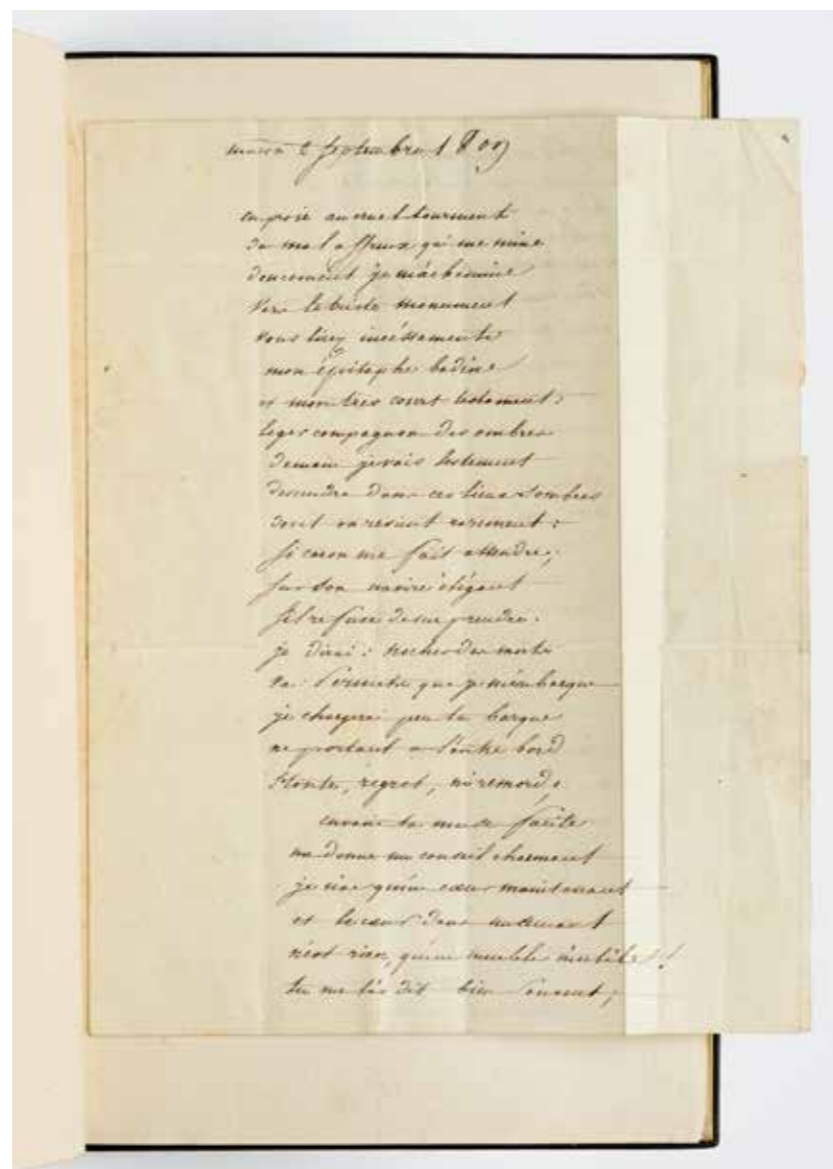 2 septembre 1809
en proie au cruel tourment
du mal affreux qui me mine
doucement je m'achemine
vers le triste monument
vous lirez incéssamente
mon épitaphe badine
et mon tres court testament :
leger compagnon des ombres
demain je vais lestement
descendre dans ces lieux sombres
dont on revient rarement :
si caron me fait attendre,
sur son navire élégant
s'il refuse de me prendre.
je dirai : nocher des morts
permets que je m'embarque
je chargerai peu ta barque
ne portant a l'autre bord
honte, regret, ni remord,
ta muse facile
me donne un conseil charmant
je n'ai qu'un cœur maintenant
et le cœur dans un amant
n'est rien, qu'un meuble inutile !
tu me l'as dit bien souvent,